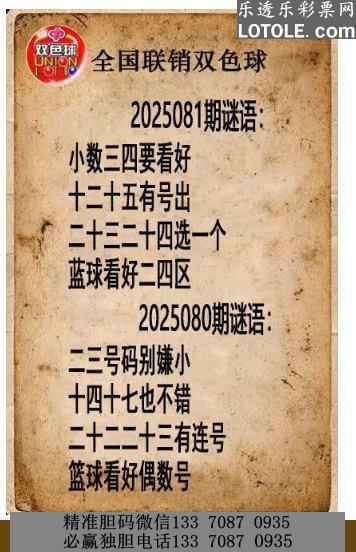 乐透乐彩票网
LOTOLE.com
双色球
UNION
LOTTO
全国联销双色球
2025081期谜语:
小数三四要看好
十二十五有号出
二十三二十四选一个
蓝球看好二四区
2025080期谜语:
二三号码别嫌小
十四十七也不错
二十二二十三有连号
篮球看好偶数号
精准胆码微信133 7087 0935
必赢独胆电话133 7087 0935